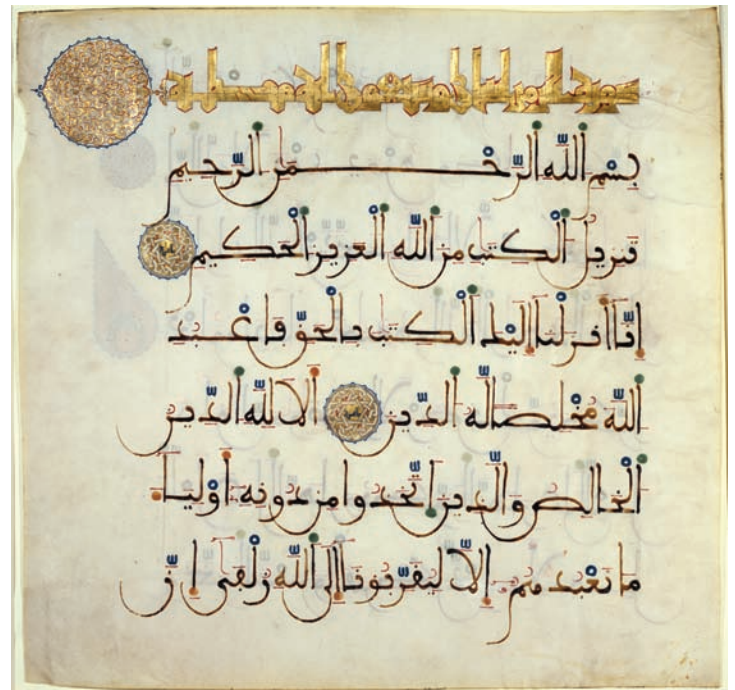 بسم الله الرحمن الرحيم
تنزيل الكتب من الله العزيز الحكيم
انّا أنزلنا إليك الكتب بالحقّ فاعبد
الله مخلصا له الدّين ألا لله الدّين
الخالص والّذين اتّخذوا من دونه أولياء
ما نعبدهم إلّا ليقرّبونا إلى الله زلفى إنّ